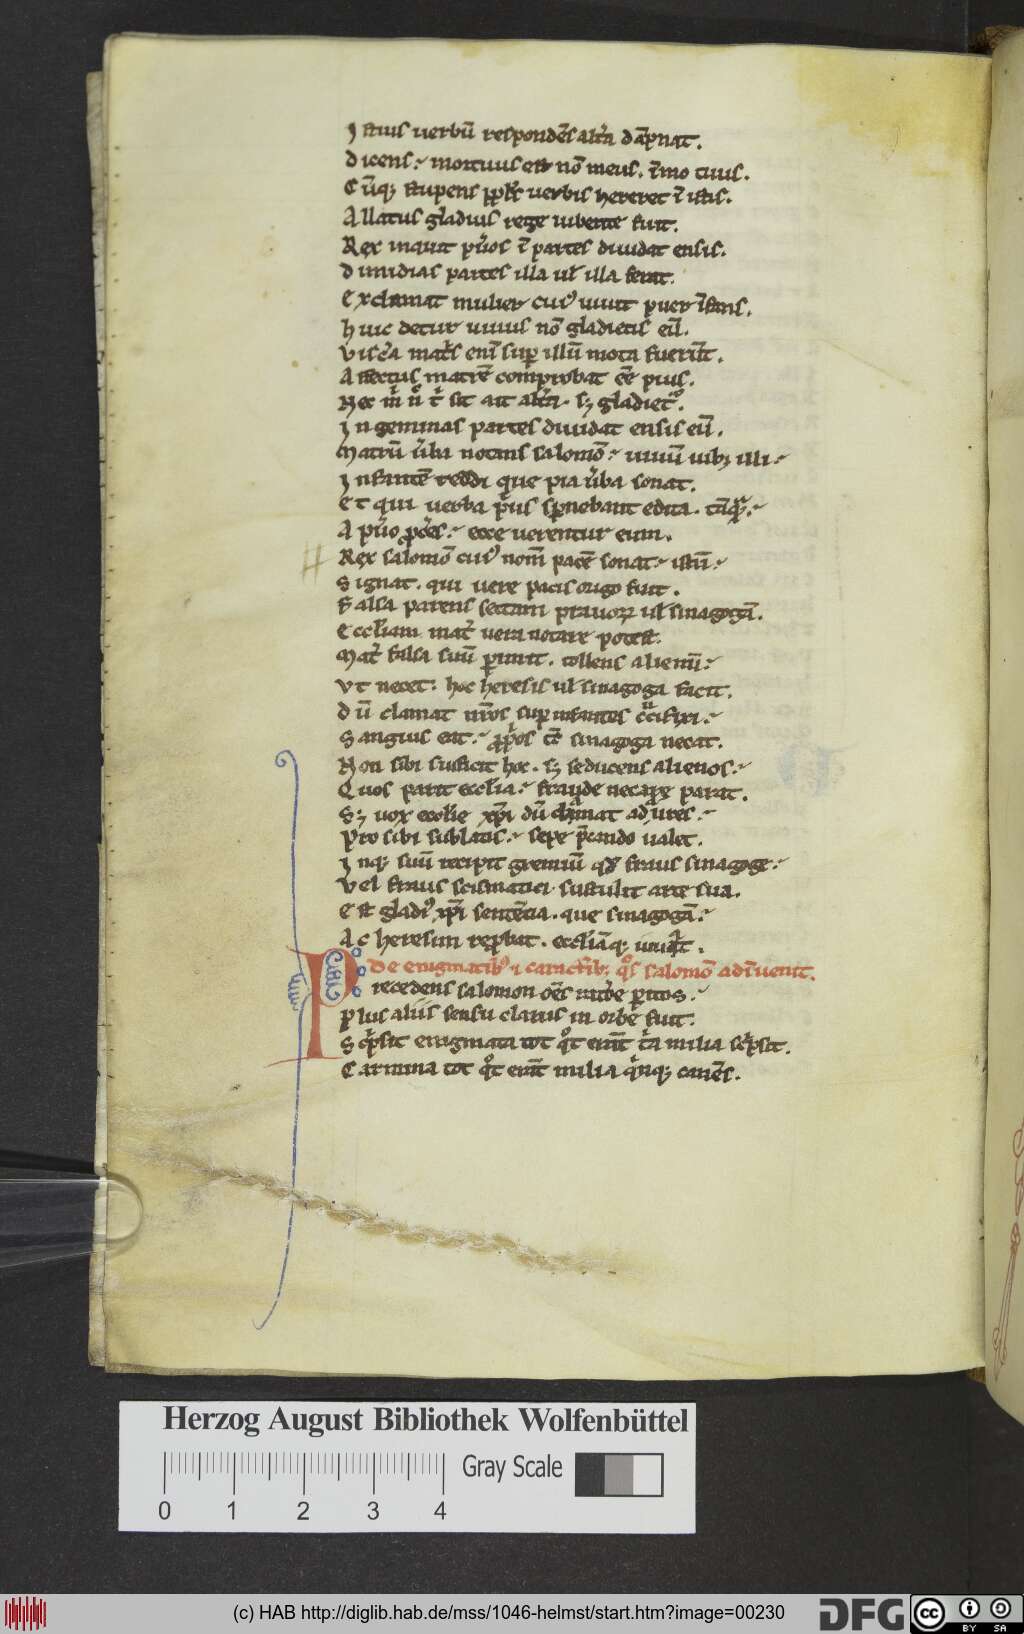 Istius uerbū respondēs alt̄a dāpnat.
Dicens⸵ mortuus est nō meus. īmo tuus.
Cūq; stupens uerbis hereret ī istis.
Allatus gladius rege iubente fuit.
Rex inquit pu͛os ī partes diuidat ensis.
Dimidias partes illa ul̄ illa ferat.
Exclamat mulier cui᾽ uiuit puer īfans.
Huic detur uiuus nō gladietis eū.
Visc͛a mat͛s eni᷒ sup illū mota fuerūt.
Affectus matrē comprobat eē pius.
Nec m͛ n͛ t͛ sit ait alt͛a. s; gladiet᷒.
In geminas partes diuidat ensis eū.
Matrū u͛ba notans salomō⸵ uiuū uib; illi⸵
Infantē reddi que pia u͛ba sonat.
Et qui uerba p͛us spnebant edita.
A pu͛o pc͛es⸵ ecce uerentur eum.
Rex salomō cui᾽ nom̄ pacē sonat⸵ istū⸵
Signat. qui uere pacis origo fuit.
Falsa parens sectam prauoꝝ ul̄ sinagogā.
Eccl̄iam mat͛ uera notare potest.
Mat͛ falsa suū pimit. tollens alienū⸵
Vt necet: hoc heresis ul̄ sinagoga facit.
Dū clamat nr̄os sup infantes c͛cifixi⸵
Sanguis erit⸵ ꝓp͛os t̄c sinagoga necat.
Non sibi sufficit hoc. s; seducens alienos⸵
Quos parit eccl̄ia⸵ fraude necareq; parat.
S; uox eccl̄ie xp̄i dū clamat ad aures⸵
Pro sibi sublatis⸵ sepe p̄cando ualet.
Inq; suū recipit gremiū qd̄ fraus sinagoge⸵
Vel fraus scismatici sustulit arte sua.
Est gladi᾽ xp̄i sentētia. que sinagogā⸵
Ac heresim reprobat. eccl̄iāq; iuuat.
De enigmatib᾽ ⁊ caract͛ib; q᷒s salomō adīuenit.
Precedens salomon oēs in urbe pitos⸵
Plus aliis sensu clarus in orbe fuit.
Sc͛psit enigmata tot q᷒t erūt t͛a milia sc͛psit.
Carmina tot q᷒t erūt milia q͛nq; canēs.
Herzog August Bibliothek Wolfenbüttel
Gray Scale
0 1 2 3 4
(c) HAB http://diglib.hab.de/mss/1046-helmst/start.htm?image=00230
DFG
cc BY SA